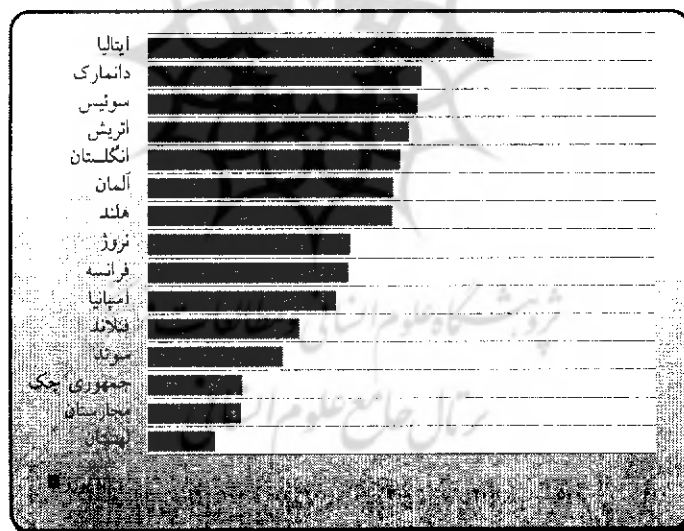 ایتالیا
دانمارک
سوئیس
اتریش
انگلستان
آلمان
هلند
نروژ
فرانسه
اسپانیا
فنلاند
سوئد
جمهوری چک
مجارستان
لهستان
پژوهشگاه علوم انسانی و مطالعات
پرتال جامع علوم انسانی